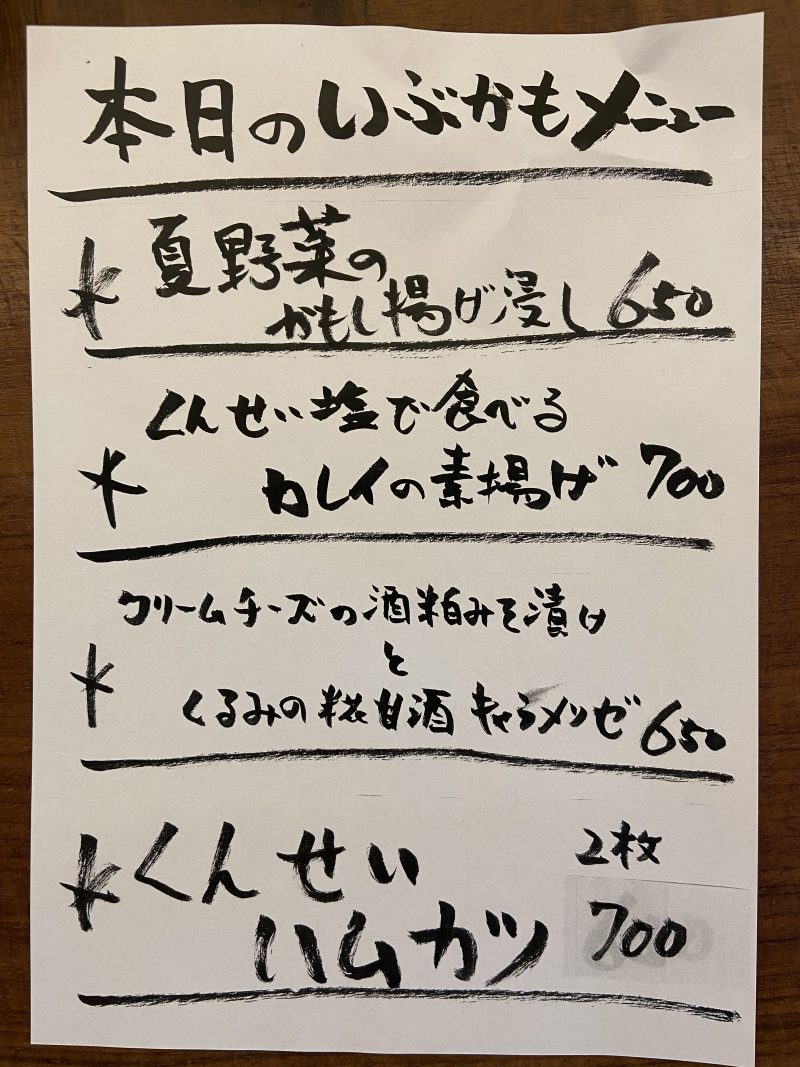 本日のいぶかもメニュー
夏野菜の
かもし揚げ浸し 650
くんせい塩で食べる
カレイの素揚げ 700
クリームチーズの酒粕みそ漬け
と
くるみの糀甘酒キャラメリゼ 650
くんせい 2枚
ハムカツ 700